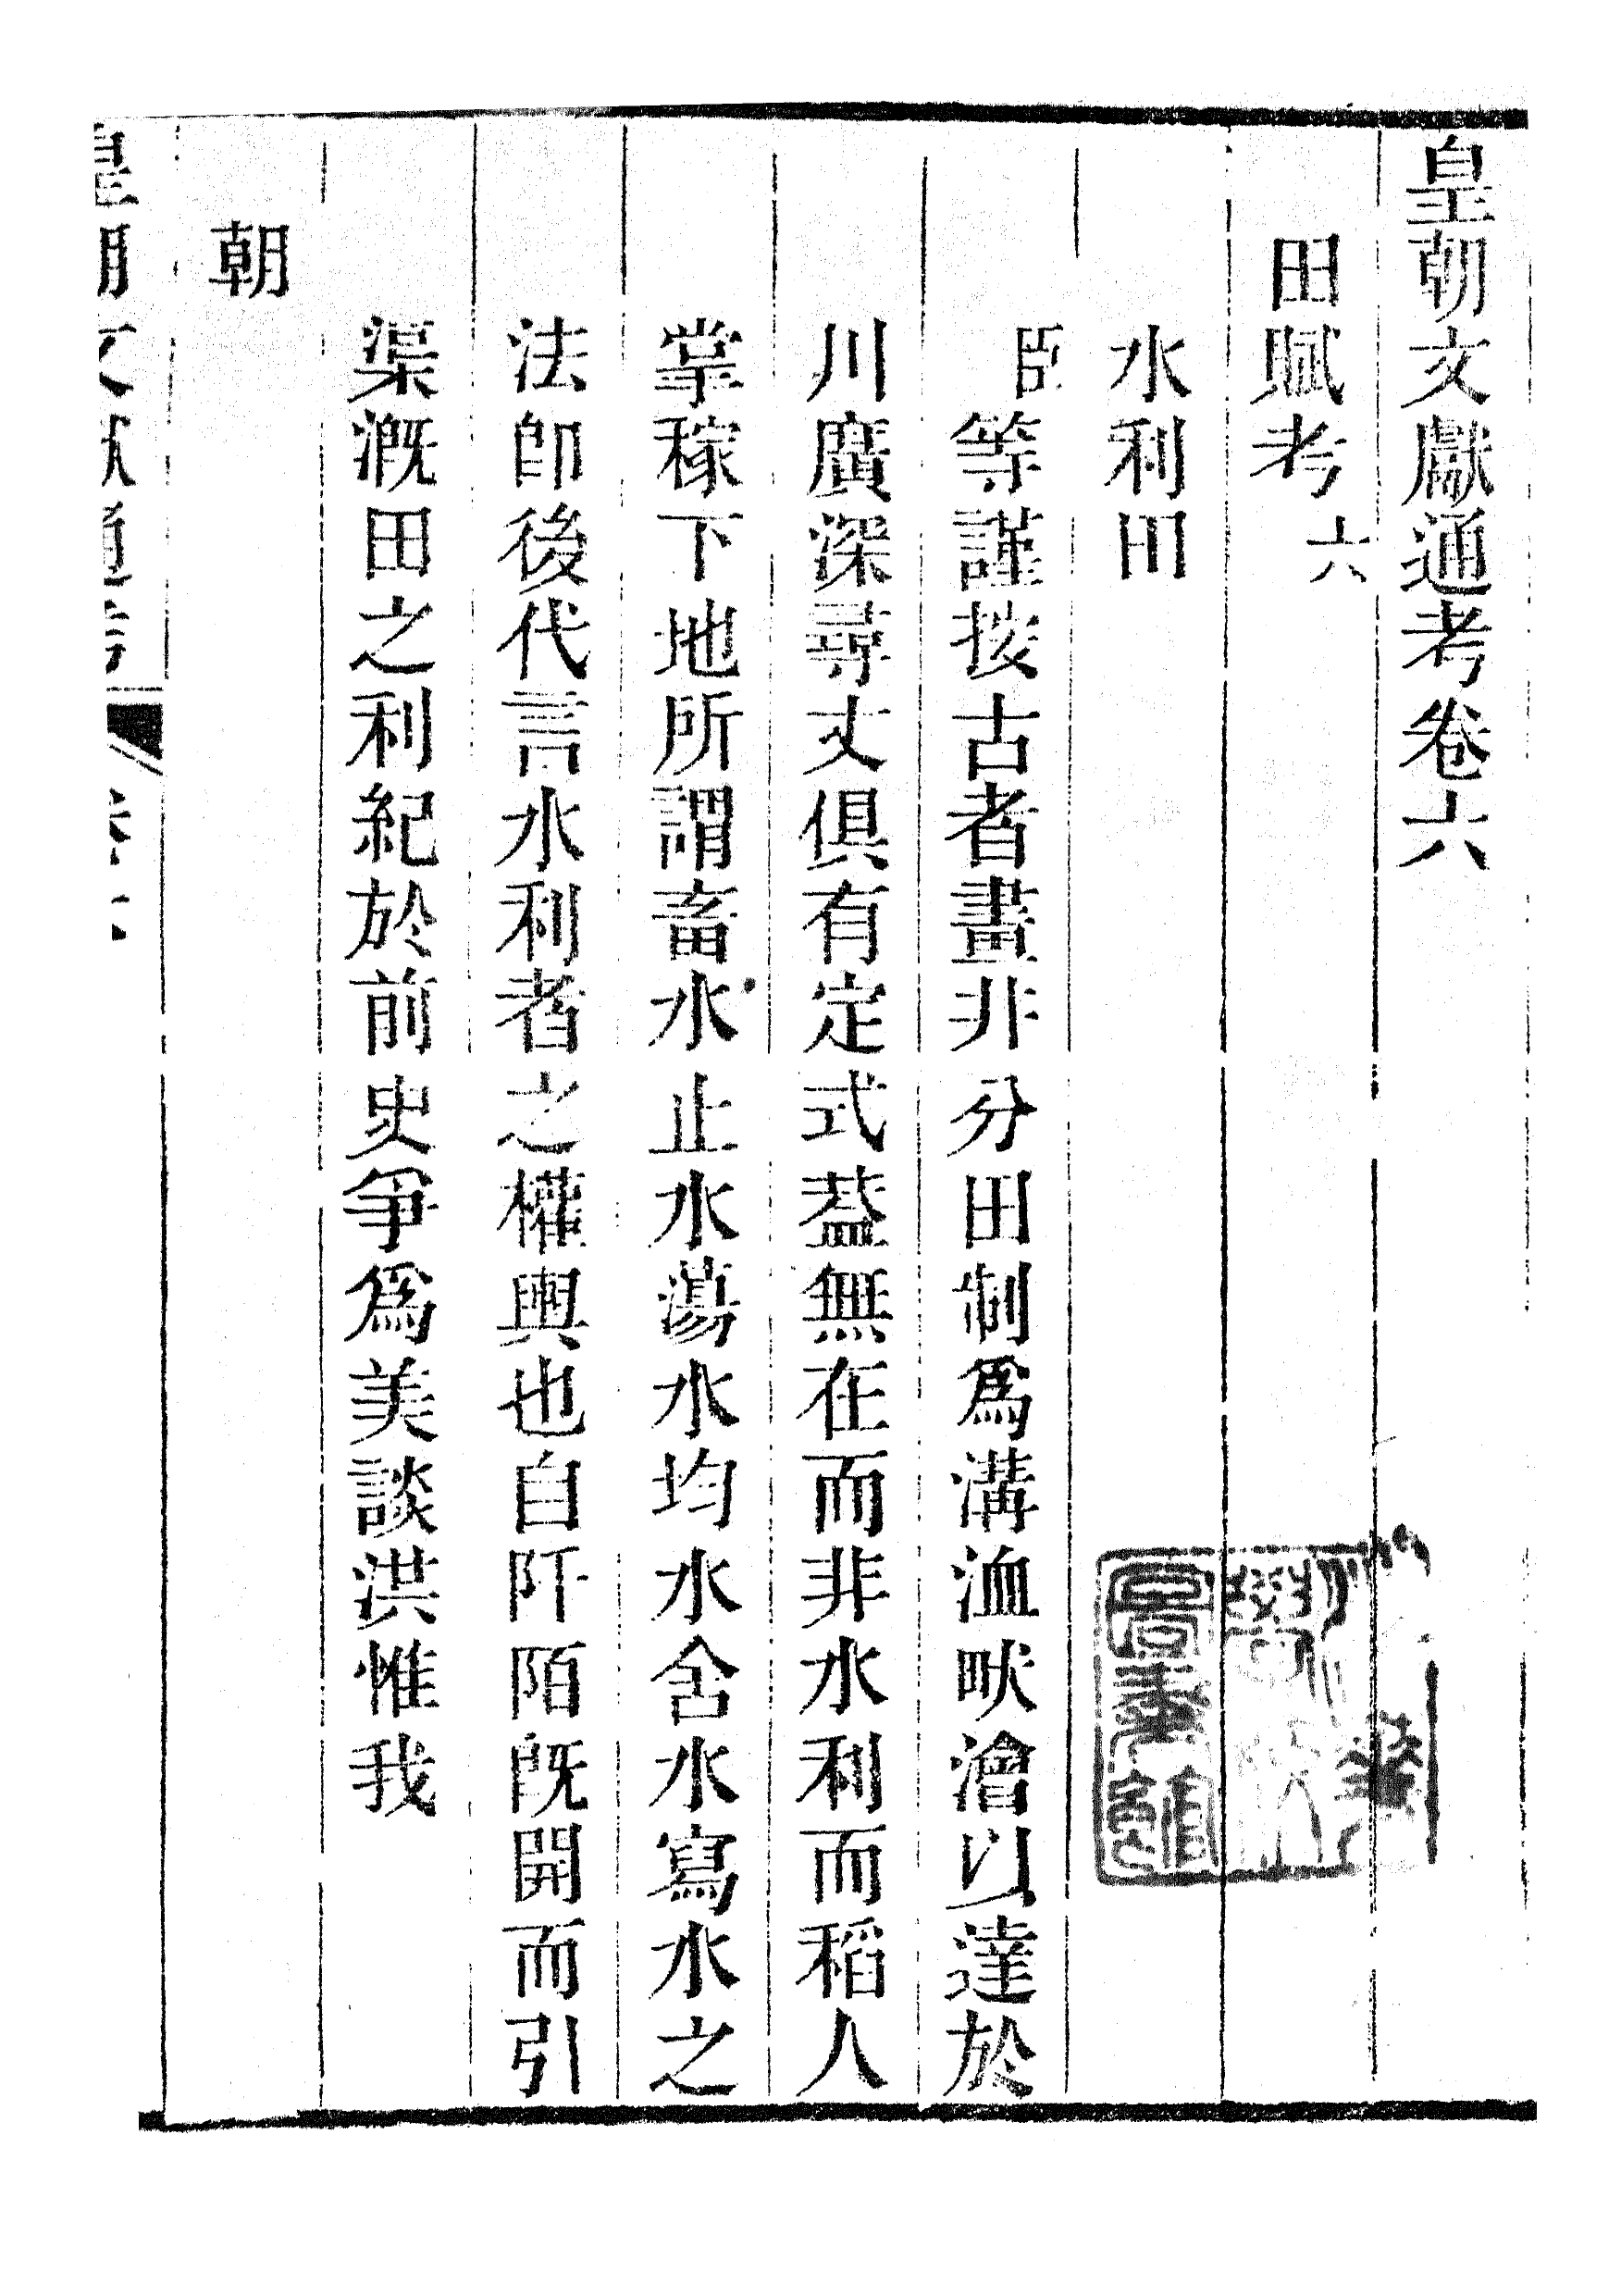 皇朝文獻通考卷六
田賦考六
水利田
臣等謹按古者畫井分田制爲溝洫畎澮以達於
川廣深尋丈俱有定式葢無在而非水利而稻人
掌稼下地所謂畜水止水蕩水均水舍水寫水之
法卽後代言水利者之權輿也自阡陌旣開而引
渠漑田之利紀於前史爭爲美談洪惟我
朝